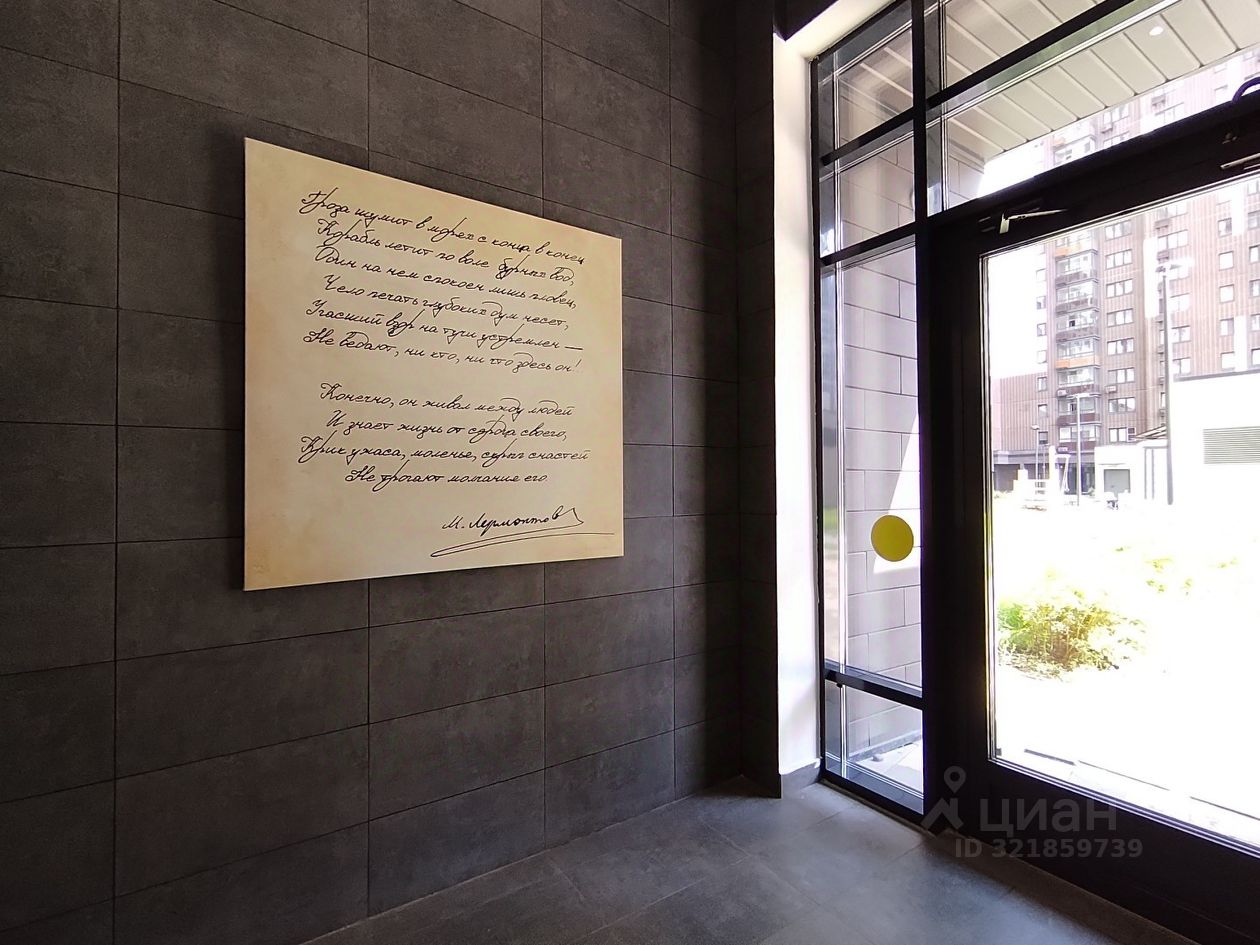 Гроза шумит в морях с конца в конец
Корабль летит по воле бурных вод,
Один на нем спокоен лишь пловец,
Чело печать глубоких дум несет,
Угасший взор на тучи устремлен —
Не ведают, ни кто, ни что здесь он!
Конечно, он живал между людей
И знает жизнь от сердца своего,
Крик ужаса, моленье, скрып снастей
Не трогают молчания его
М. Лермонтов
циан
ID 321859739